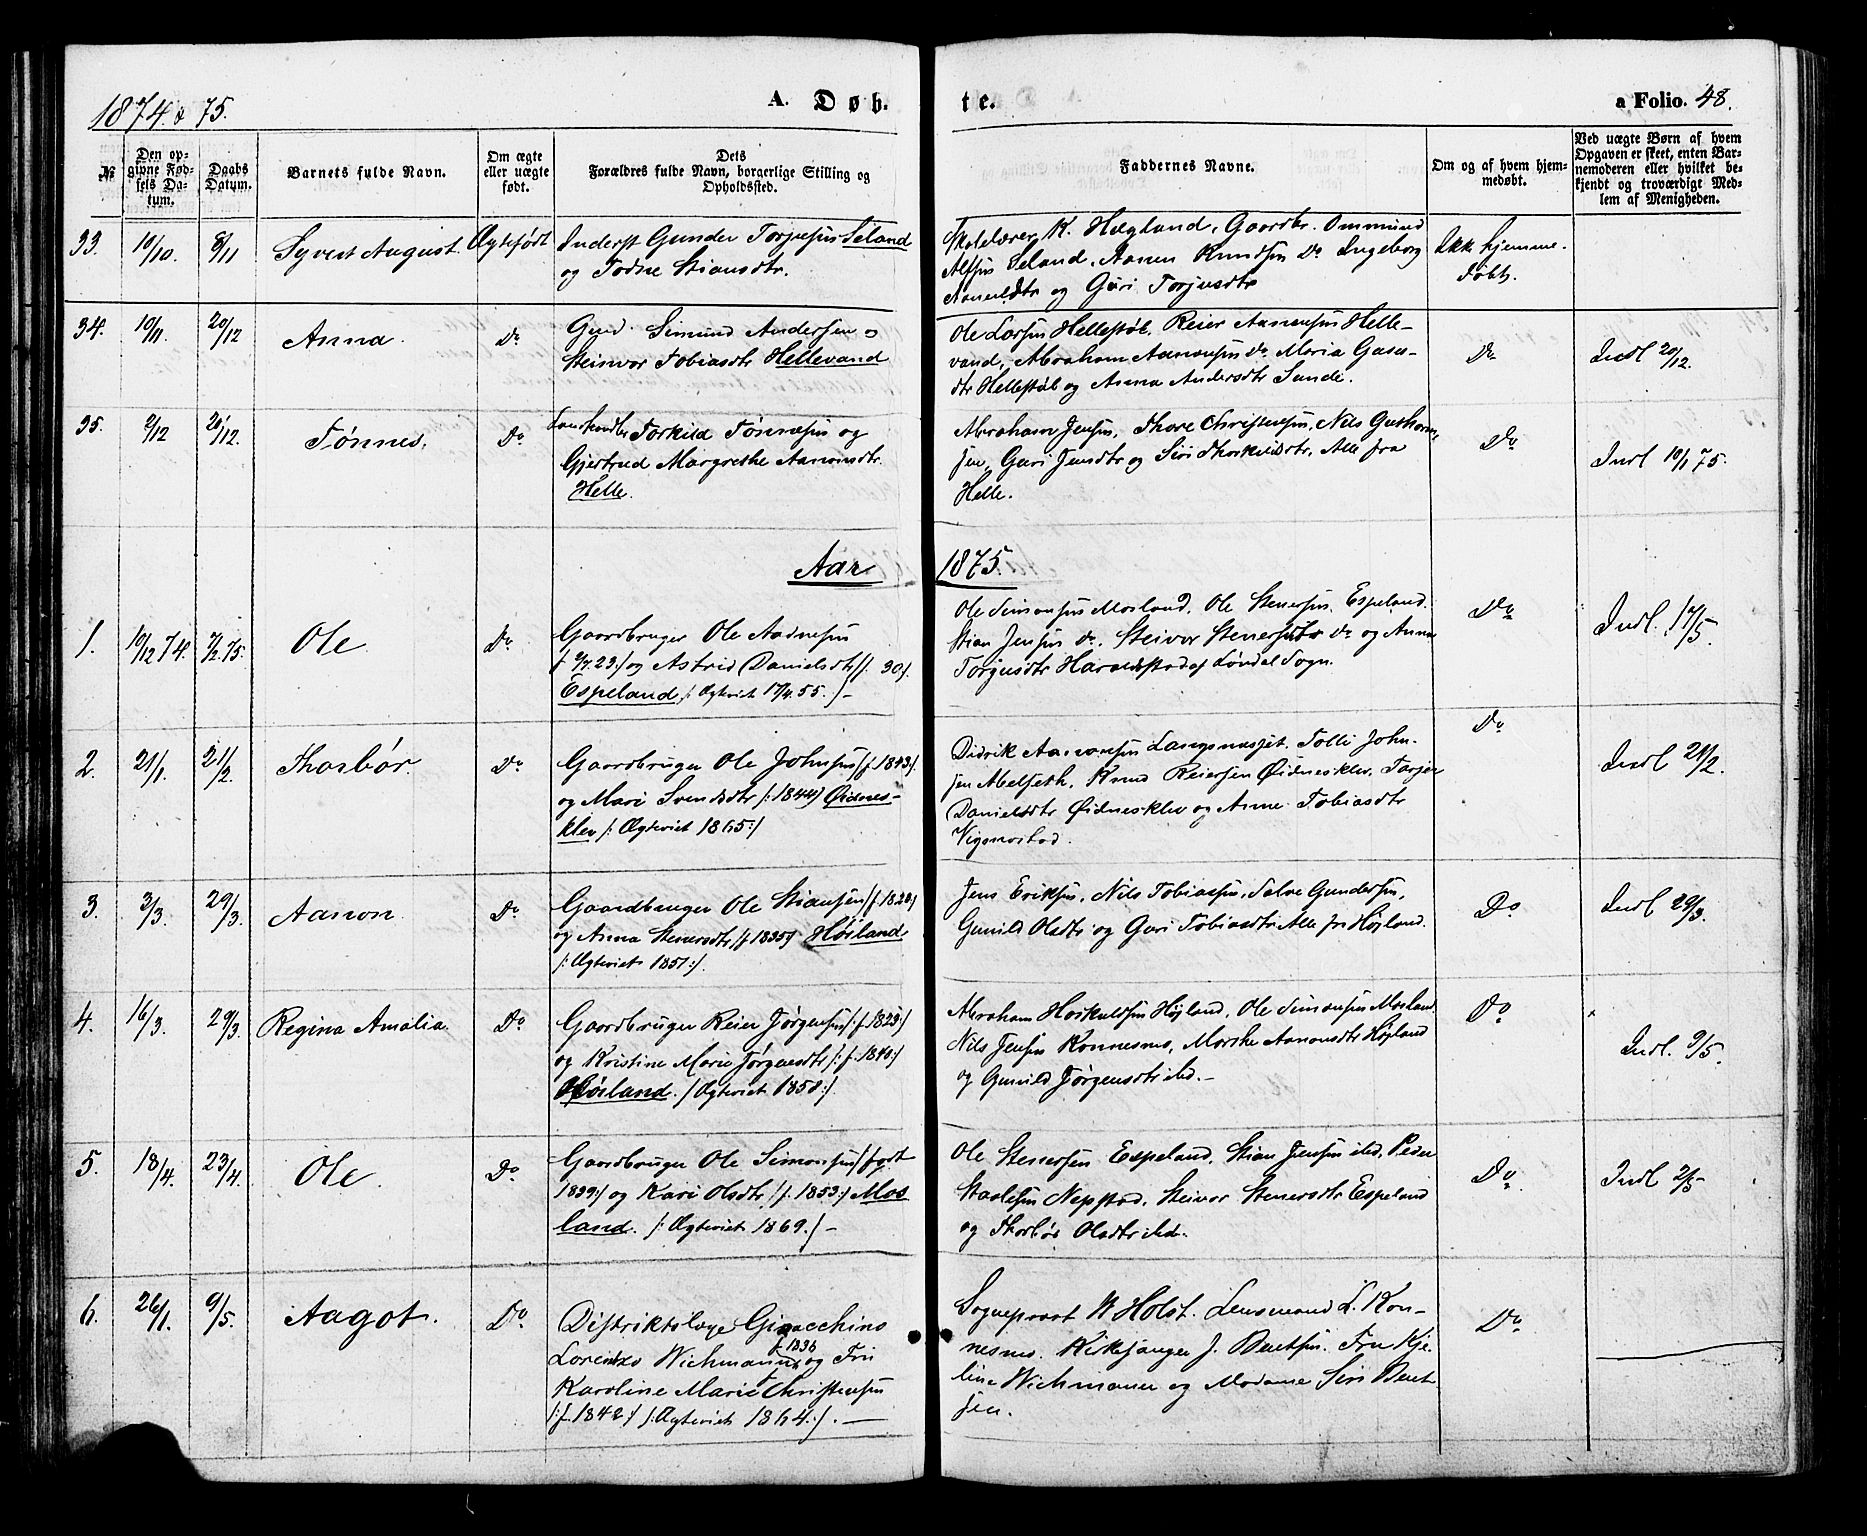 1874 & 75.
A. Døb.
te.
a Folio. 48.
№
Den op-
givne Fød-
sels Da-
tum.
Daabs
Datum.
Barnets fulde Navn.
Om ægte
eller uægte
født.
Dets
Forældres fulde Navn, borgerlige Stilling og
Opholdssted.
Faddernes Navne.
Om og af hvem hjem-
medøbt.
Ved uægte Børn af hvem
Opgaven er skeet, enten Bar-
nemoderen eller hvilket be-
kjendt og troværdigt Med-
lem af Menigheden.
33. 10/10. 8/11 Syvert August. Ægtefødt
Inderst Gunder Torjusen Seland
og Todne Stiansdtr.
Skolelærer K. Hægland, Gaardbr. Ommund
Alfsen Seland, Aanen Knudsen Do Ingeborg
og Guri Torjusdtr
Ikk hjemme-
døbt.
34. 10/11. 20/12 Anna. Do
Gmd. Simund Andersen og
Steinvor Tobiasdtr Hellevand
Ole Larsen Hellestøl. Reier Aanensen Helle-
vand, Abraham Aanensen do. Maria
dtr Hellestøl og Anna Andersdtr Sunde.
Do Indl 20/12.
35. 9/12 26/12. Tønnes. Do
Torkild Tønnesen og
Gjertrud Margrethe Aanonsdtr.
Helle.
Abraham Jensen, Thore Christensen, Nils Guthorm-
sen, Guri Jensdtr og Siri Thorkildsdtr, Alle fra
Helle.
Do Indl 10/1 75.
Aar 1875.
1. 10/12 74. 7/2 75. Ole Do
Gaardbruger Ole Aadnesen
f 9/7 23:/ og Astrid Danielsdtr /f. 30/.
Espeland /: Ægteviet 17/4. 55. /-
Ole Simonsen Mosland. Ole Stenersen. Espeland.
Stian Jensen do. Steivor Stenersdtr do og Anna
Torgusdtr Haraldstad af Løndal Sogn.
Do Indl. 17/5.
2. 21/1. 21/2. Thorbør. Do
Gaardbruger Ole Johnsen /f. 1843/.
og Mari Svendsdtr /: 1844/ Øidnes-
klev /: Ægteviet 1865:/
Didrik Aanonsen Tolli John-
sen Abelseth. Knud Reiersen Øidnesklev. Torjer
Danielsdtr Øidnesklev og Anne Tobiasdtr
Vigmostad.
Do Indl 21/2.
3. 3/3. 29/3. Aanon. Do
Gaardbruger Ole Stiansen /f. 1820/
og Anna Stenersdtr /f 1835/ Høiland.
/: Ægteviet 1857:/.
Jens Eriksen, Nils Tobiassen, Salve Gundersen,
Gunild Olsdtr og Guri Tobiasdtr Alle fra Højland.
Do Indl 29/3.
4. 16/3. 29/3. Regina Amalia. Do
Gaardbruger Reier Jørgensen /:f. 1823:/
og Kristine Marie Jørgensdtr /: f. 1840:/
Høiland. /Ægteviet 1858:/.
Abraham Højland. Ole Simonsen Mosland.
Nils Jensen Konnesmo, Marthe Aanonsdtr Højland
og Gunild Jørgensdtr ibd.-
Do Indl. 9/5.
5. 18/4. 23/4. Ole. Do
Gaardbruger Ole Simonsen /født
1839:/ og Kari Olsdtr /: f. 1853:/ Mos
land. /: Ægteviet 1869. /-
Ole Stenersen Espeland, Stian Jensen ibd, Peder
Neppstad. Steivor Stenersdtr Espeland
og Thorbør Olsdtr ibd.
Do Indl 2/5
6. 26/1. 9/5. Aagot. Do
Distriktslæge Gioacchino
Lorentzo Wichmann f. 1836 og Fru
Karoline Marie Christensen
/:f. 1842:/ /:Ægteviet 1864:/. —
Sogneprest W Holst. Lensmand L. Kon-
nesmo. Kirkesanger J. Bentsen. Fru Kje-
line Wichmann og Madame Siri Bent-
sen.
Do